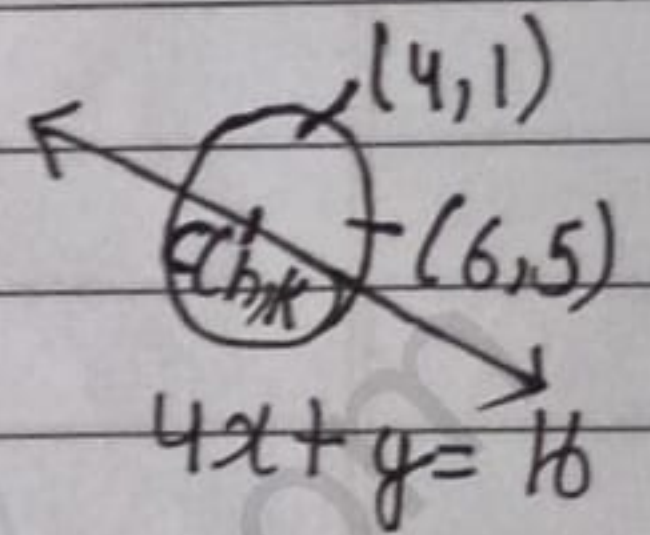 (4,1)
(6,5)
C(h,k
4x+y=16